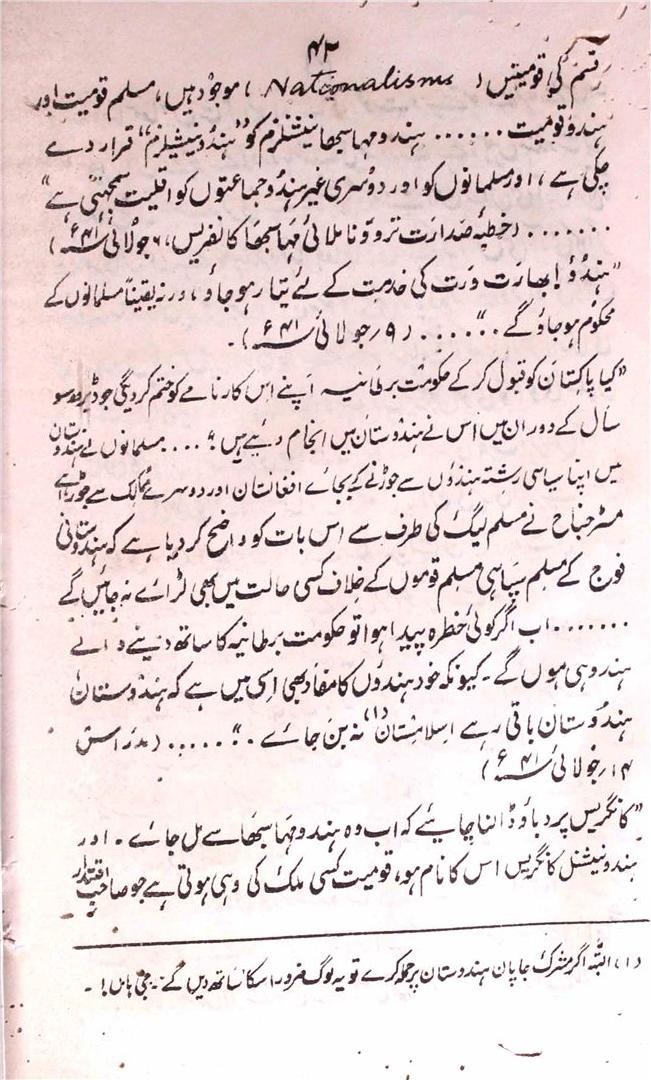 ۴۲
قسم کی قومیتیں ( Nationalisms ) موجود ہیں، مسلم قومیت اور
ہندو قومیت ...... ہندو مہا سبھا نیشنلزم کو "ہندو نیشیلزم" قرار دے
چکی ہے، اور مسلمانوں کو اور دوسری غیر ہندو جماعتوں کو اقلیت سمجھتی ہے"
....... (خطبۂ صدارت ترووناملائی مہا سبھا کانفرنس، ۶ جولائی ۴۱ء)
"ہندوؤ! بھارت ورت کی خدمت کے لئے تیار ہو جاؤ، ورنہ یقیناً مسلمانوں کے
محکوم ہو جاؤ گے ...." .... (۹ر جولائی ۴۱ء)۔
"کیا پاکستان کو قبول کر کے حکومت برطانیہ اپنے اس کارنامے کو ختم کر دیگی جو ڈیڑھ سو
سال کے دوران میں اس نے ہندوستان میں انجام دیئے ہیں؟ .... مسلمانوں نے ہندوستان
میں اپنا سیاسی رشتہ ہندوں سے جوڑنے کے بجائے افغانستان اور دوسرے ممالک سے جوڑا ہے
مسٹر جناح نے مسلم لیگ کی طرف سے اس بات کو واضح کر دیا ہے کہ ہندوستانی
فوج کے مسلم سپاہی مسلم قوموں کے خلاف کسی حالت میں بھی لڑائے نہ جائیں گے
....... اب اگر کوئی خطرہ پیدا ہوا تو حکومت برطانیہ کا ساتھ دینے والے
ہندو ہی ہوں گے۔ کیونکہ خود ہندوں کا مفاد بھی اسی میں ہے کہ ہندوستان
ہندوستان باقی رہے اسلامستان (۱) نہ بن جائے ۔" ..... (مدراس
۱۴ر جولائی ۴۱ء)
"کانگریس پر دباؤ ڈالنا چاہیئے کہ اب وہ ہندو مہا سبھا سے مل جائے ۔ اور
ہندو نیشنل کانگریس اس کا نام ہو، قومیت کسی ملک کی وہی ہوتی ہے جو صاحب اقتدار
(۱) البتہ اگر مشرک جاپان ہندوستان پر حملہ کرے تو یہ لوگ ضرور اسکا ساتھ دیں گے۔ جی ہاں!۔